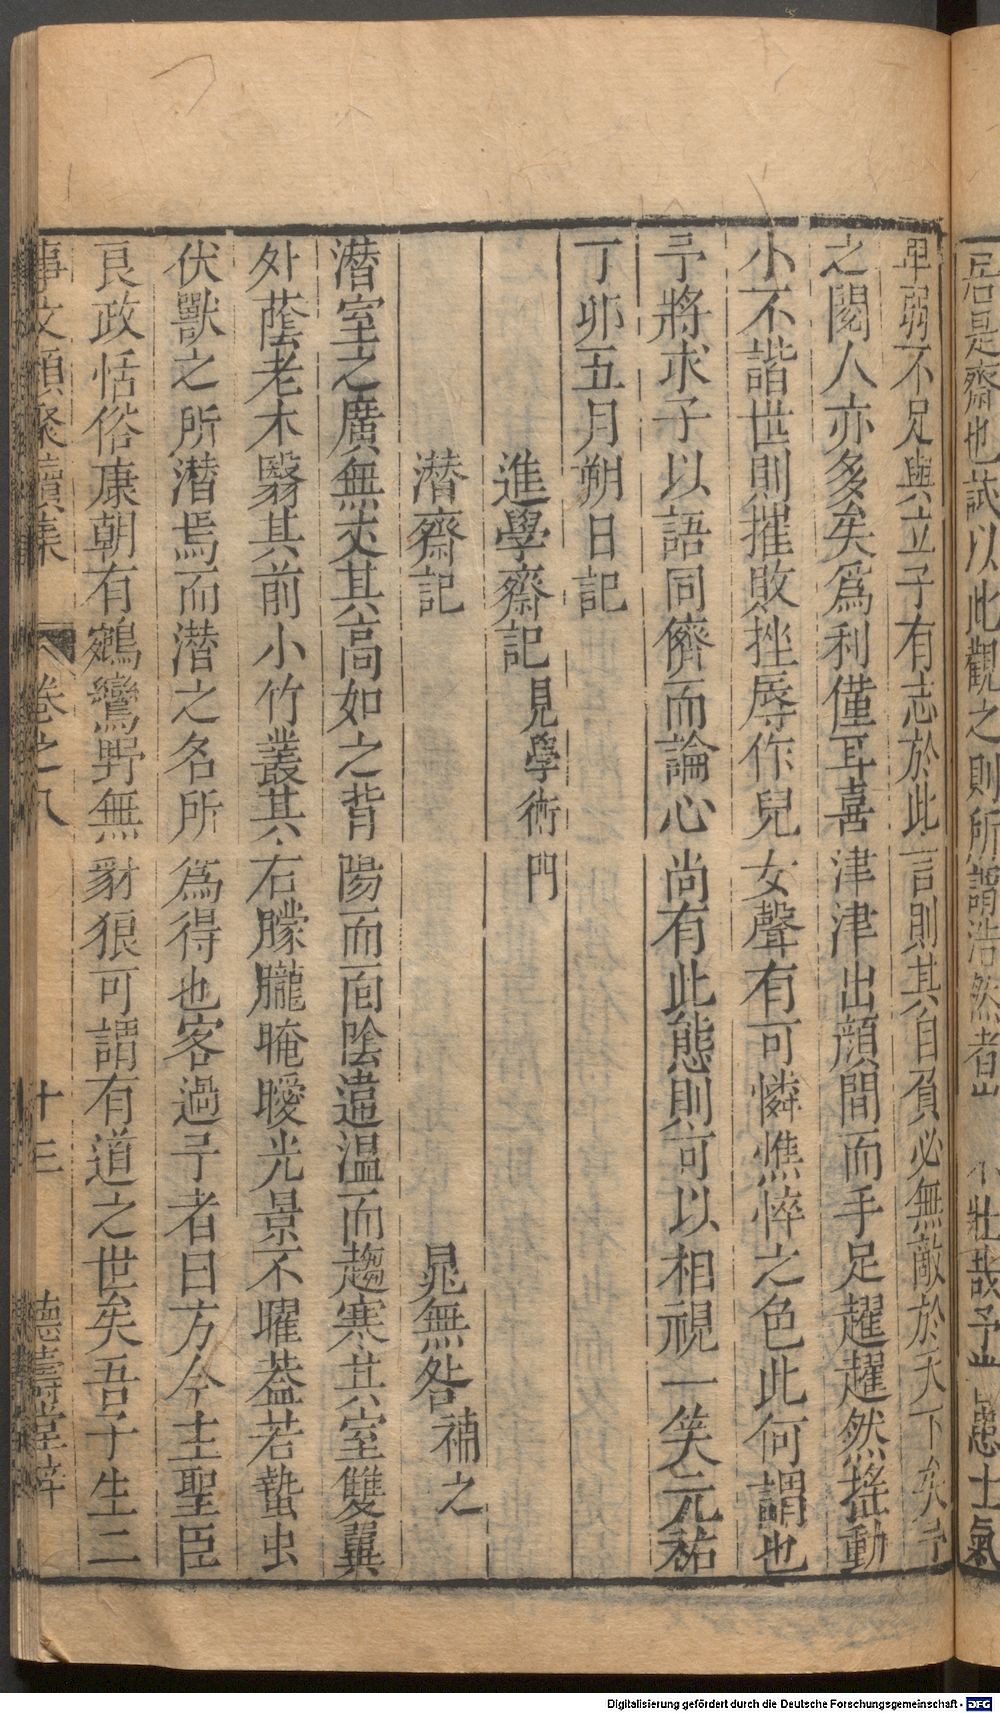 居是齋也試以此觀之則所謂浩然者豈不壯哉予豈患士氣
卑弱不足與立子有志於此言則其自負必無敵於天下矣予
之閱人亦多矣爲利僅耳喜津津出顔間而手足趯趯然搖動
小不諧世則摧敗挫辱作兒女聲有可憐憔悴之色此何謂也
予將求子以語同儕而論心尚有此態則可以相視一笑元祐
丁卯五月朔日記
進學齋記見學術門
潜齋記 晁無咎補之
潜室之廣無丈其高如之背陽而面陰違温而趨寒其室雙翼
外蔭老木翳其前小竹叢其右朦朧晻曖光景不曜葢若蟄虫
伏獸之所潜焉而潜之名所爲得也客過予者曰方今主聖臣
良政恬俗康朝有鵷鸞野無豺狼可謂有道之世矣吾子生二
事文類聚續集 卷之八 十三 德壽堂梓
Digitalisierung gefördert durch die Deutsche Forschungsgemeinschaft - DFG